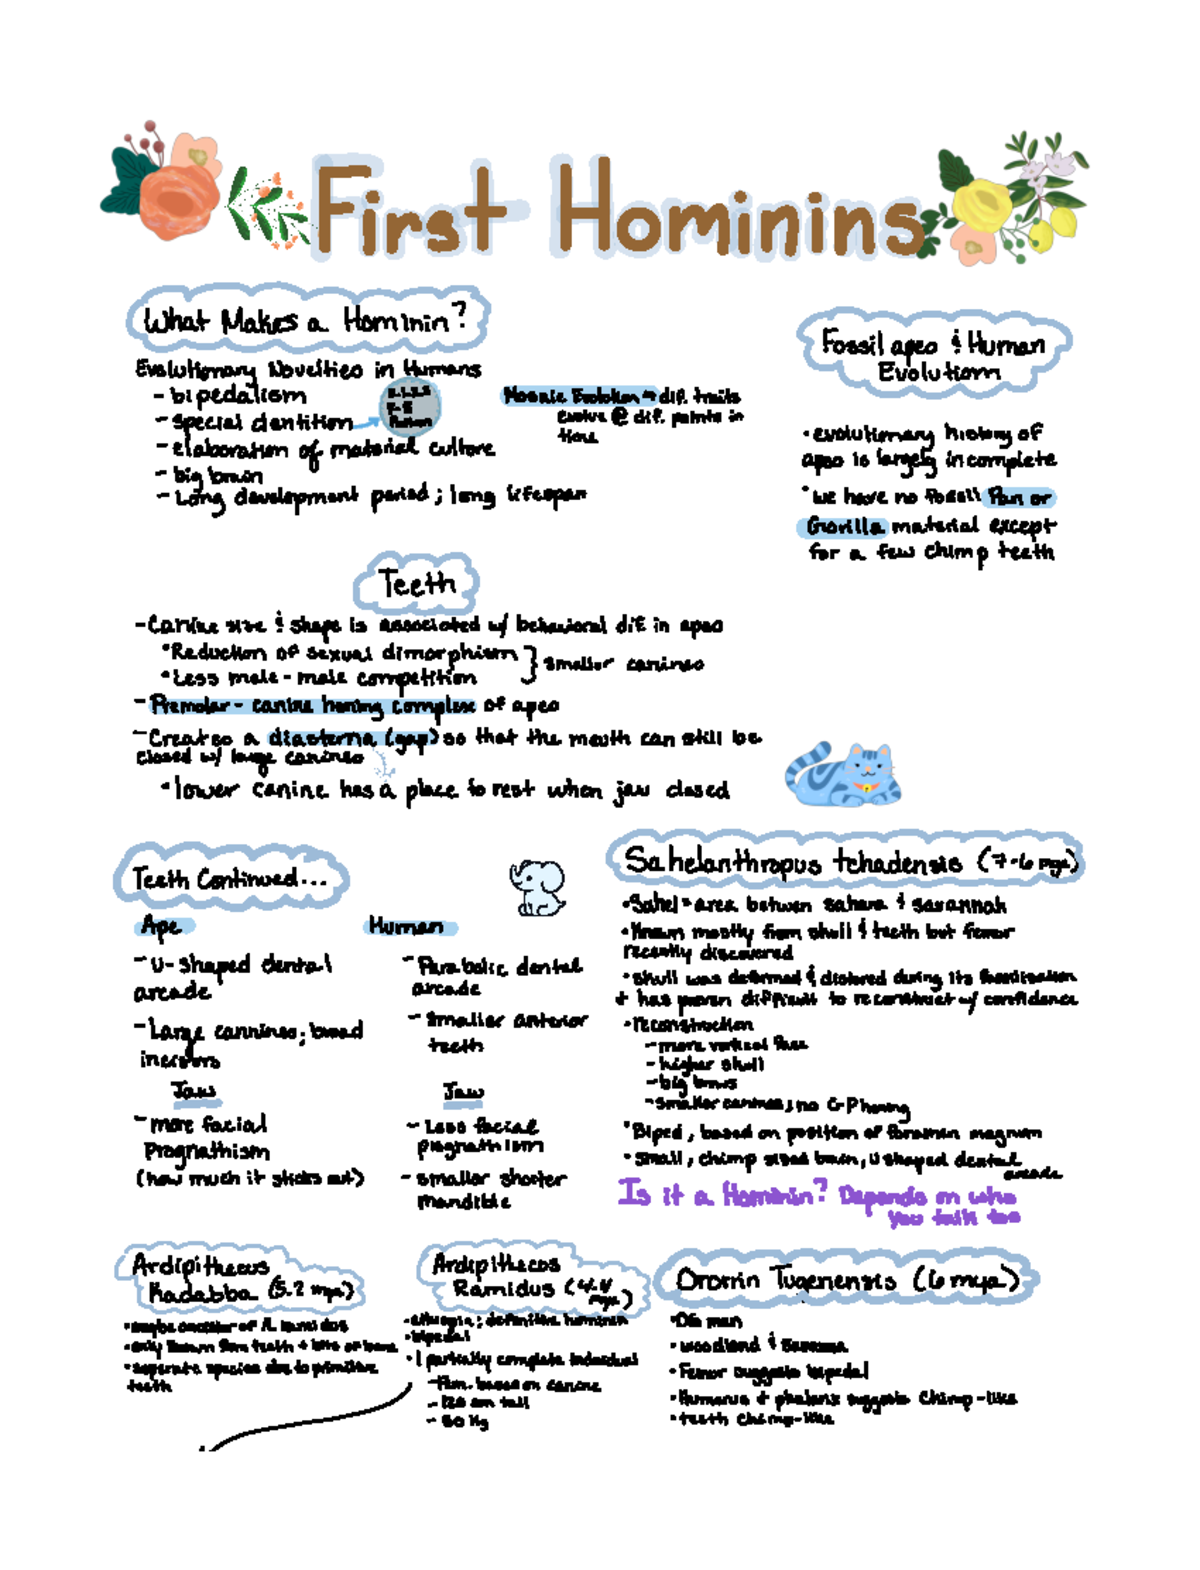 First Hominins
What Makes a Hominin?
Evolutionary Novelties in Humans
- bipedalism
- special dentition
- elaboration of material culture
- big brain
- Long development period; long lifespan
Mosaic Evolution → dif. traits
evolve @ dif. points in
time
Fossil apes & Human
Evolution
• evolutionary history of
apes is largely incomplete
• we have no fossil Pan or
Gorilla material except
for a few chimp teeth
Teeth
- Canine size & shape is associated w/ behavioral dif. in apes
• Reduction of sexual dimorphism
• Less male-male competition
} smaller canines
- Premolar-canine honing complex of apes
- Creates a diastema (gap) so that the mouth can still be
closed w/ large canines
• lower canine has a place to rest when jaw closed
Teeth Continued...
Ape
- U-shaped dental
arcade
- Large cannines; broad
incisors
Jaw
- more facial
Prognathism
(how much it sticks out)
Human
- Parabolic dental
arcade
- smaller anterior
teeth
Jaw
- Less facial
prognathism
- smaller shorter
mandible
Sahelanthropus tchadensis (7-6 mya)
• Sahel = area betwen sahara & savannah
• Known mostly from skull & teeth but femur
recently discovered
• skull was deformed & distored during its fossilization
+ has proven difficult to reconstruct w/ confidence
• reconstruction
- more vertical face
- higher skull
- big brows
- smaller canines; no C-P honing
• Biped, based on position of foramen magnum
• small, chimp sized brain, U shaped dental
arcade
Is it a Hominin? Depends on who
you talk too
Ardipithecus
Kadabba (5.2 mya)
• maybe ancestor of A. ramidus
• only known from teeth + bits of bone
• seperate species due to primitive
teeth
Ardipithecus
Ramidus (4.4
mya)
• ethiopia; definitive hominin
• bipedal
• 1 partially complete individual
- Fem. based on canine
- 120 cm tall
- 50 Kg
Ororrin Tugenensis (6 mya)
• OG man
• woodland & Savanna
• Femor suggests bipedal
• Humerus + phalanx suggests chimp-like
• teeth chimp-like